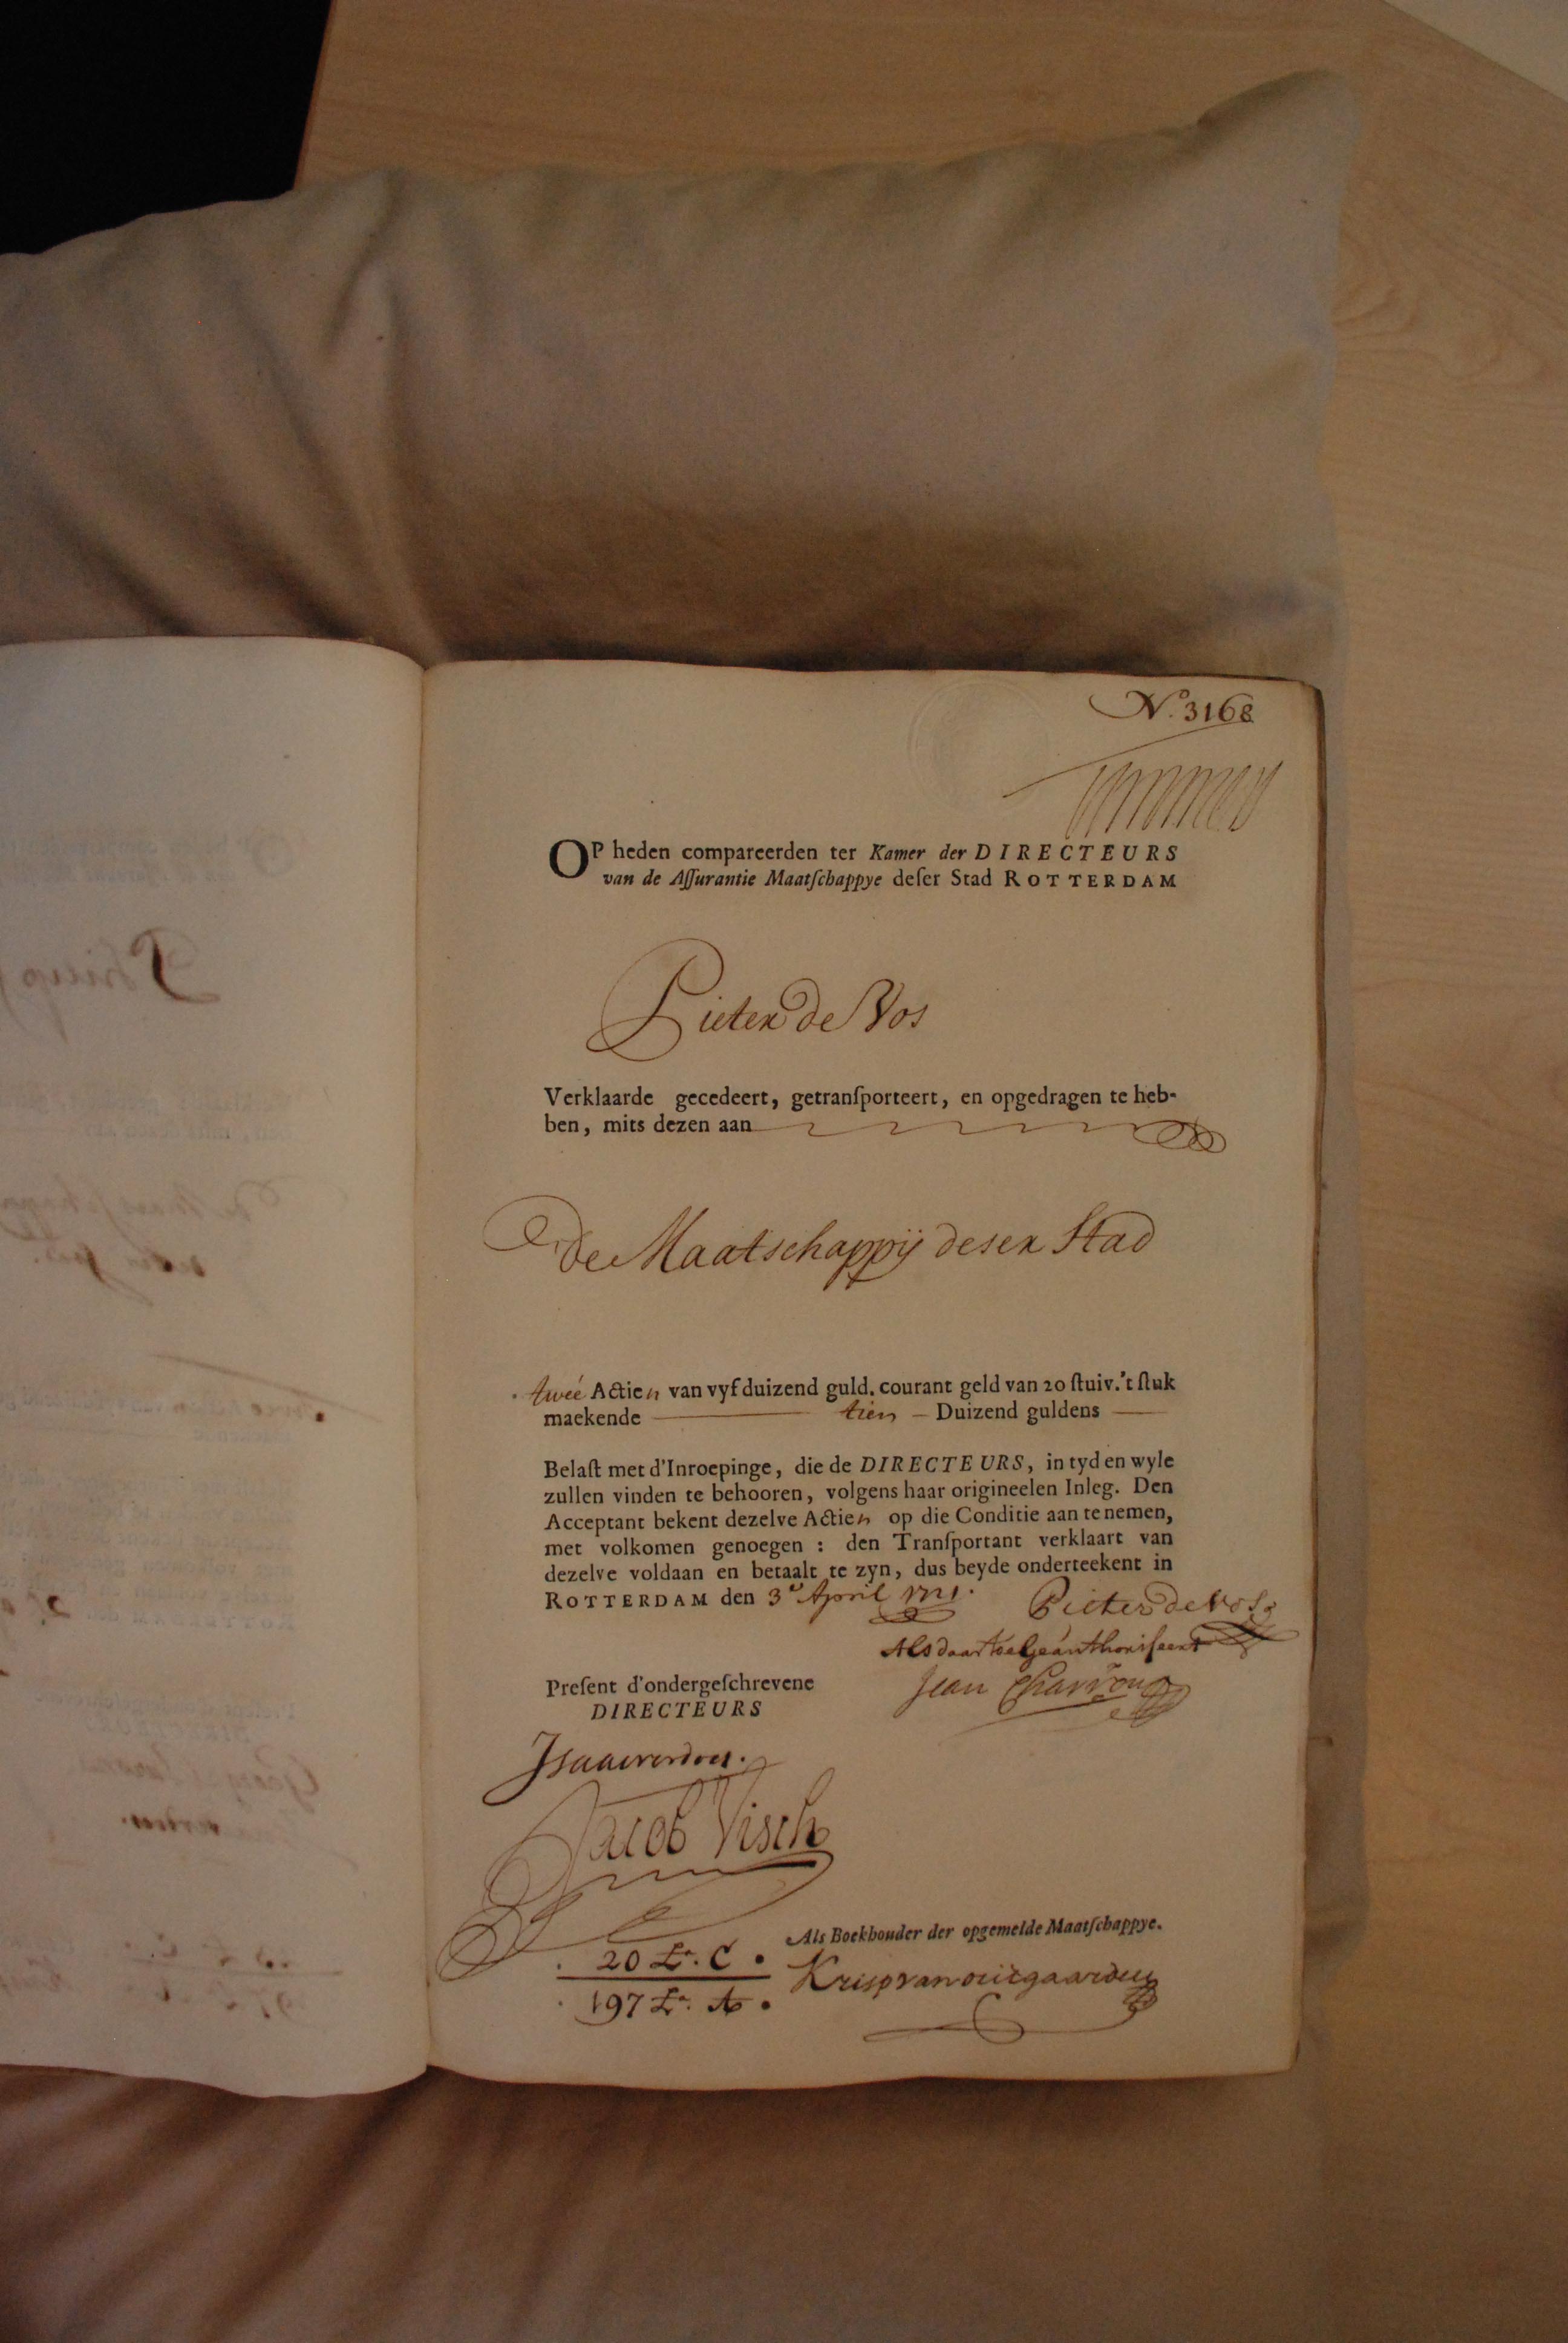 No. 3168
OP heden compareerden ter Kamer der DIRECTEURS
van de Aſſurantie Maatſchappye deſer Stad ROTTERDAM
Pieter de Vos
Verklaarde gecedeert, getranſporteert, en opgedragen te heb-
ben, mits dezen aan
De Maatschappij deser Stad
twee Actien van vyf duizend guld. courant geld van 20 ſtuiv. 't ſtuk
maekende tien Duizend guldens
Belaſt met d'Inroepinge, die de DIRECTEURS, in tyd en wyle
zullen vinden te behooren, volgens haar origineelen Inleg. Den
Acceptant bekent dezelve Actien op die Conditie aan te nemen,
met volkomen genoegen : den Tranſportant verklaart van
dezelve voldaan en betaalt te zyn, dus beyde onderteekent in
ROTTERDAM den 3e April 1721.
Pieter de Vos
Als daar toe Geauthoriseert
Jean Charron
Preſent d'ondergeſchrevene
DIRECTEURS
Jacob Visch
Als Boekhouder der opgemelde Maatſchappye.
20 La. C
197 La. A